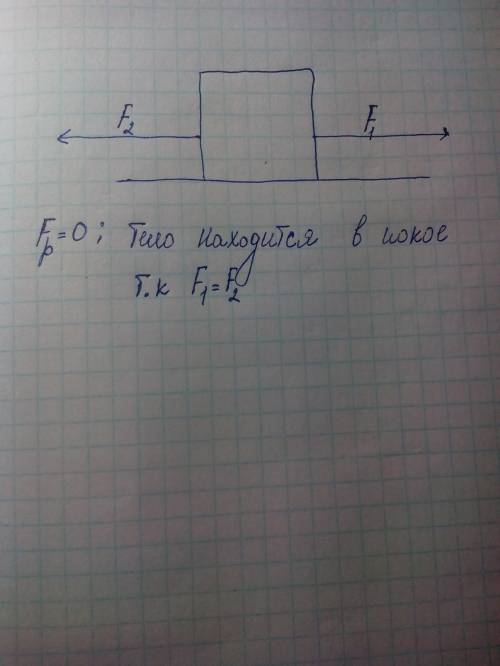 F₂ F₁
Fр=0; Тело находится в покое
т.к F₁=F₂